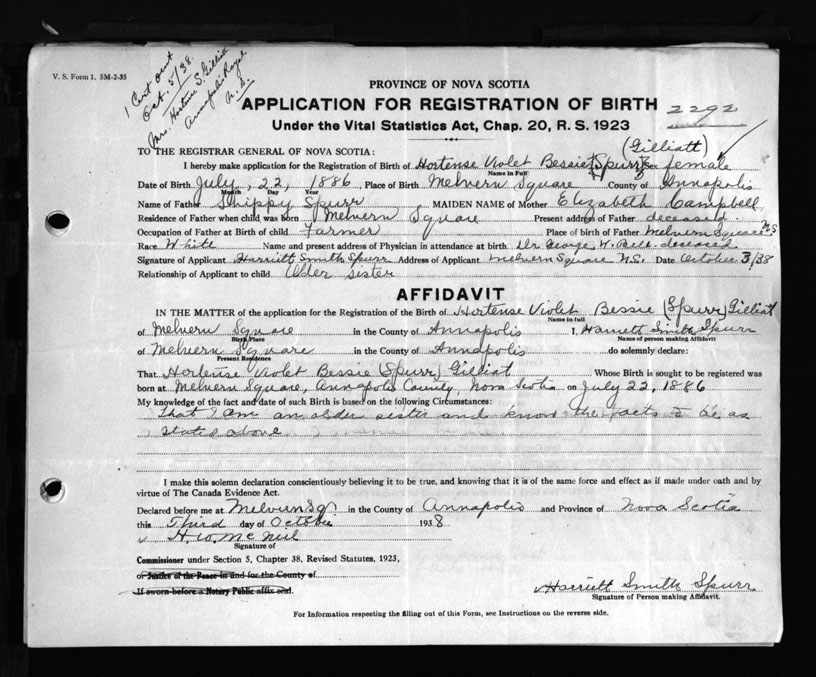 V. S. Form 1. 5M-2-35
1 Cert out
Oct. 5/38.
Mrs. Hortense S. Gilliatt
Annapolis Royal
N. S.
PROVINCE OF NOVA SCOTIA
APPLICATION FOR REGISTRATION OF BIRTH
2292
Under the Vital Statistics Act, Chap. 20, R. S. 1923
(Gilliatt)
TO THE REGISTRAR GENERAL OF NOVA SCOTIA:
I hereby make application for the Registration of Birth of Hortense Violet Bessie (Spurr) Sex female
Name in Full
Date of Birth July, 22, 1886 Place of Birth Melvern Square County of Annapolis
Month Day Year
Name of Father Shippy Spurr MAIDEN NAME of Mother Elizabeth Campbell
Residence of Father when child was born Melvern Square Present address of Father deceased.
Occupation of Father at Birth of child Farmer Place of birth of Father Melvern Square N.S
Race White Name and present address of Physician in attendance at birth Dr. George W. Bell. deceased
Signature of Applicant Harriett Smith Spurr Address of Applicant Melvern Square N.S. Date October 3/38
Relationship of Applicant to child Older sister
AFFIDAVIT
IN THE MATTER of the application for the Registration of the Birth of Hortense Violet Bessie (Spurr) Gilliat
Name in full
of Melvern Square in the County of Annapolis I, Harriett Smith Spurr
Birth Place Name of person making Affidavit
of Melvern Square in the County of Annapolis do solemnly declare:
Present Residence
That Hortense Violet Bessie (Spurr) Gilliat Whose Birth is sought to be registered was
born at Melvern Square, Annapolis County, Nova Scotia on July 22, 1886
My knowledge of the fact and date of such Birth is based on the following Circumstances:
That I am an older sister and know the facts to be as
stated above
I make this solemn declaration conscientiously believing it to be true, and knowing that it is of the same force and effect as if made under oath and by
virtue of The Canada Evidence Act.
Declared before me at Melvern Sq. in the County of Annapolis and Province of Nova Scotia
this Third day of October 1938
H. W. McNeil
Signature of
Commissioner under Section 5, Chapter 38, Revised Statutes, 1923,
or Justice of the Peace in and for the County of
If sworn before a Notary Public affix seal.
Harriett Smith Spurr
Signature of Person making Affidavit.
For Information respecting the filling out of this Form, see Instructions on the reverse side.